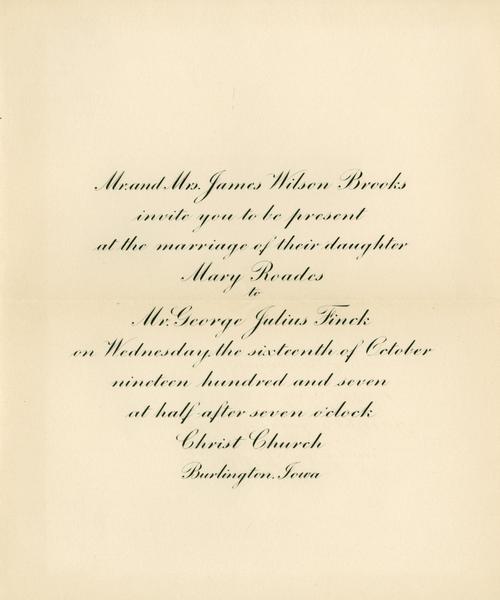 Mr. and Mrs. James Wilson Brooks
invite you to be present
at the marriage of their daughter
Mary Roades
to
Mr. George Julius Finck
on Wednesday, the sixteenth of October
nineteen hundred and seven
at half-after seven o'clock
Christ Church
Burlington, Iowa